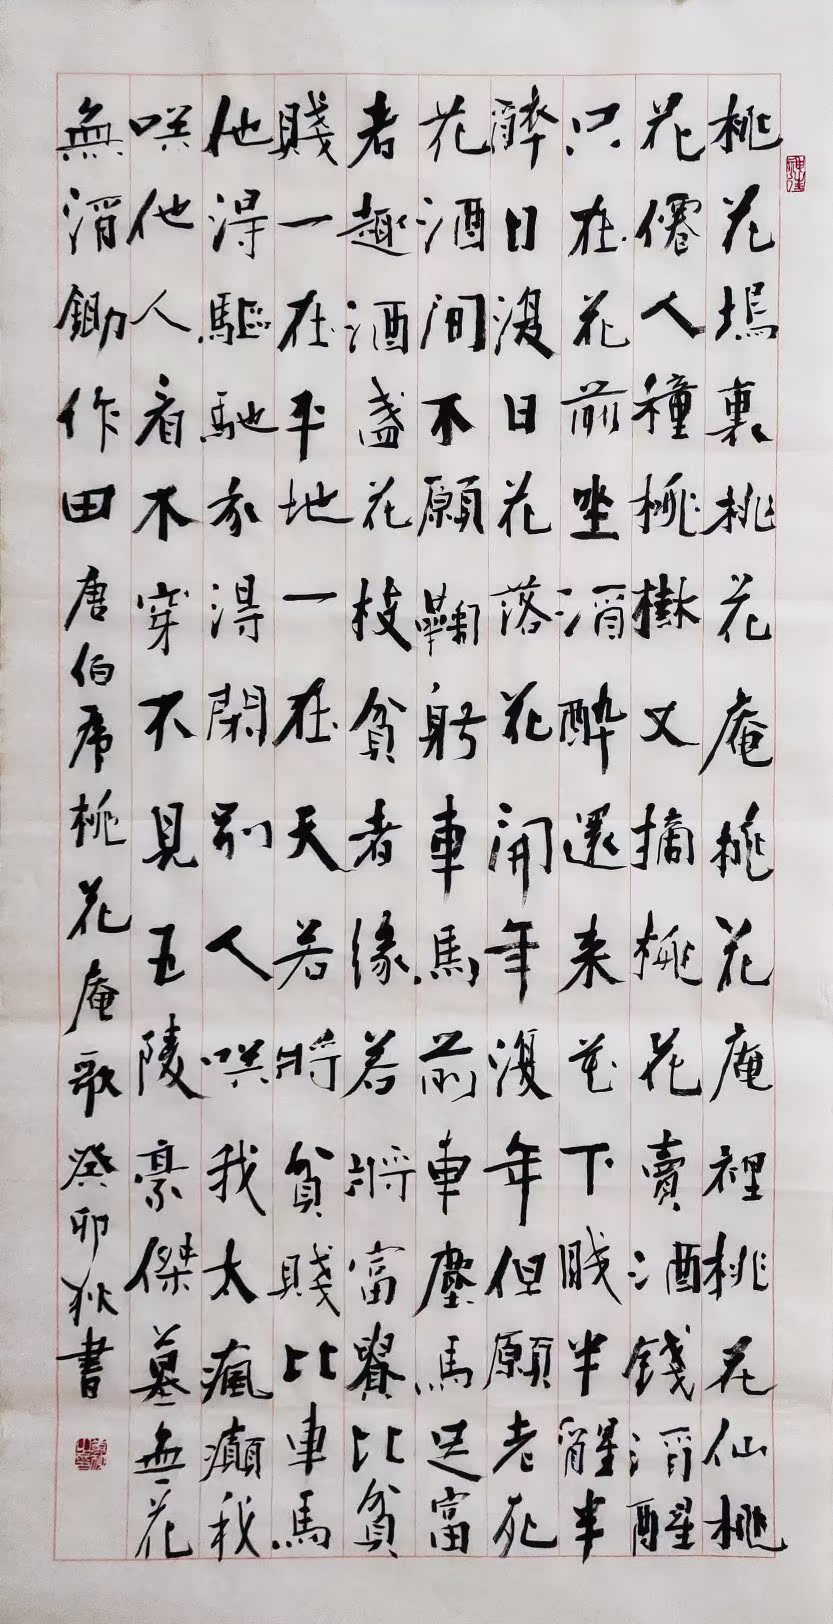 桃花塢裏桃花庵桃花庵裡桃花仙桃
花僊人種桃樹又摘桃花賣酒錢酒醒
只在花前坐酒醉還来花下眠半醒半
醉日復日花落花開年復年但願老死
花酒間不願鞠躬車馬前車塵馬足富
者趣酒盞花枝貧者緣若將富貴比貧
賤一在平地一在天若將貧賤比車馬
他得驅馳我得閑別人咲我太瘋癲我
咲他人看不穿不見五陵豪傑墓無花
無酒鋤作田唐伯虎桃花庵歌癸卯狄書